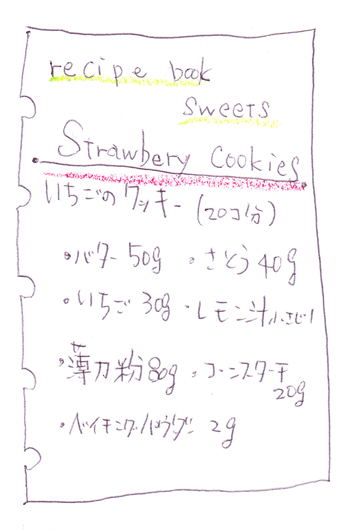 recipe book
sweets
Strawbery Cookies
いちごのクッキー (20コ分)
・バター 50g ・さとう 40g
・いちご 30g ・レモン汁 小さじ1
・薄力粉 80g ・コーンスターチ
20g
・ベイキングパウダー 2g